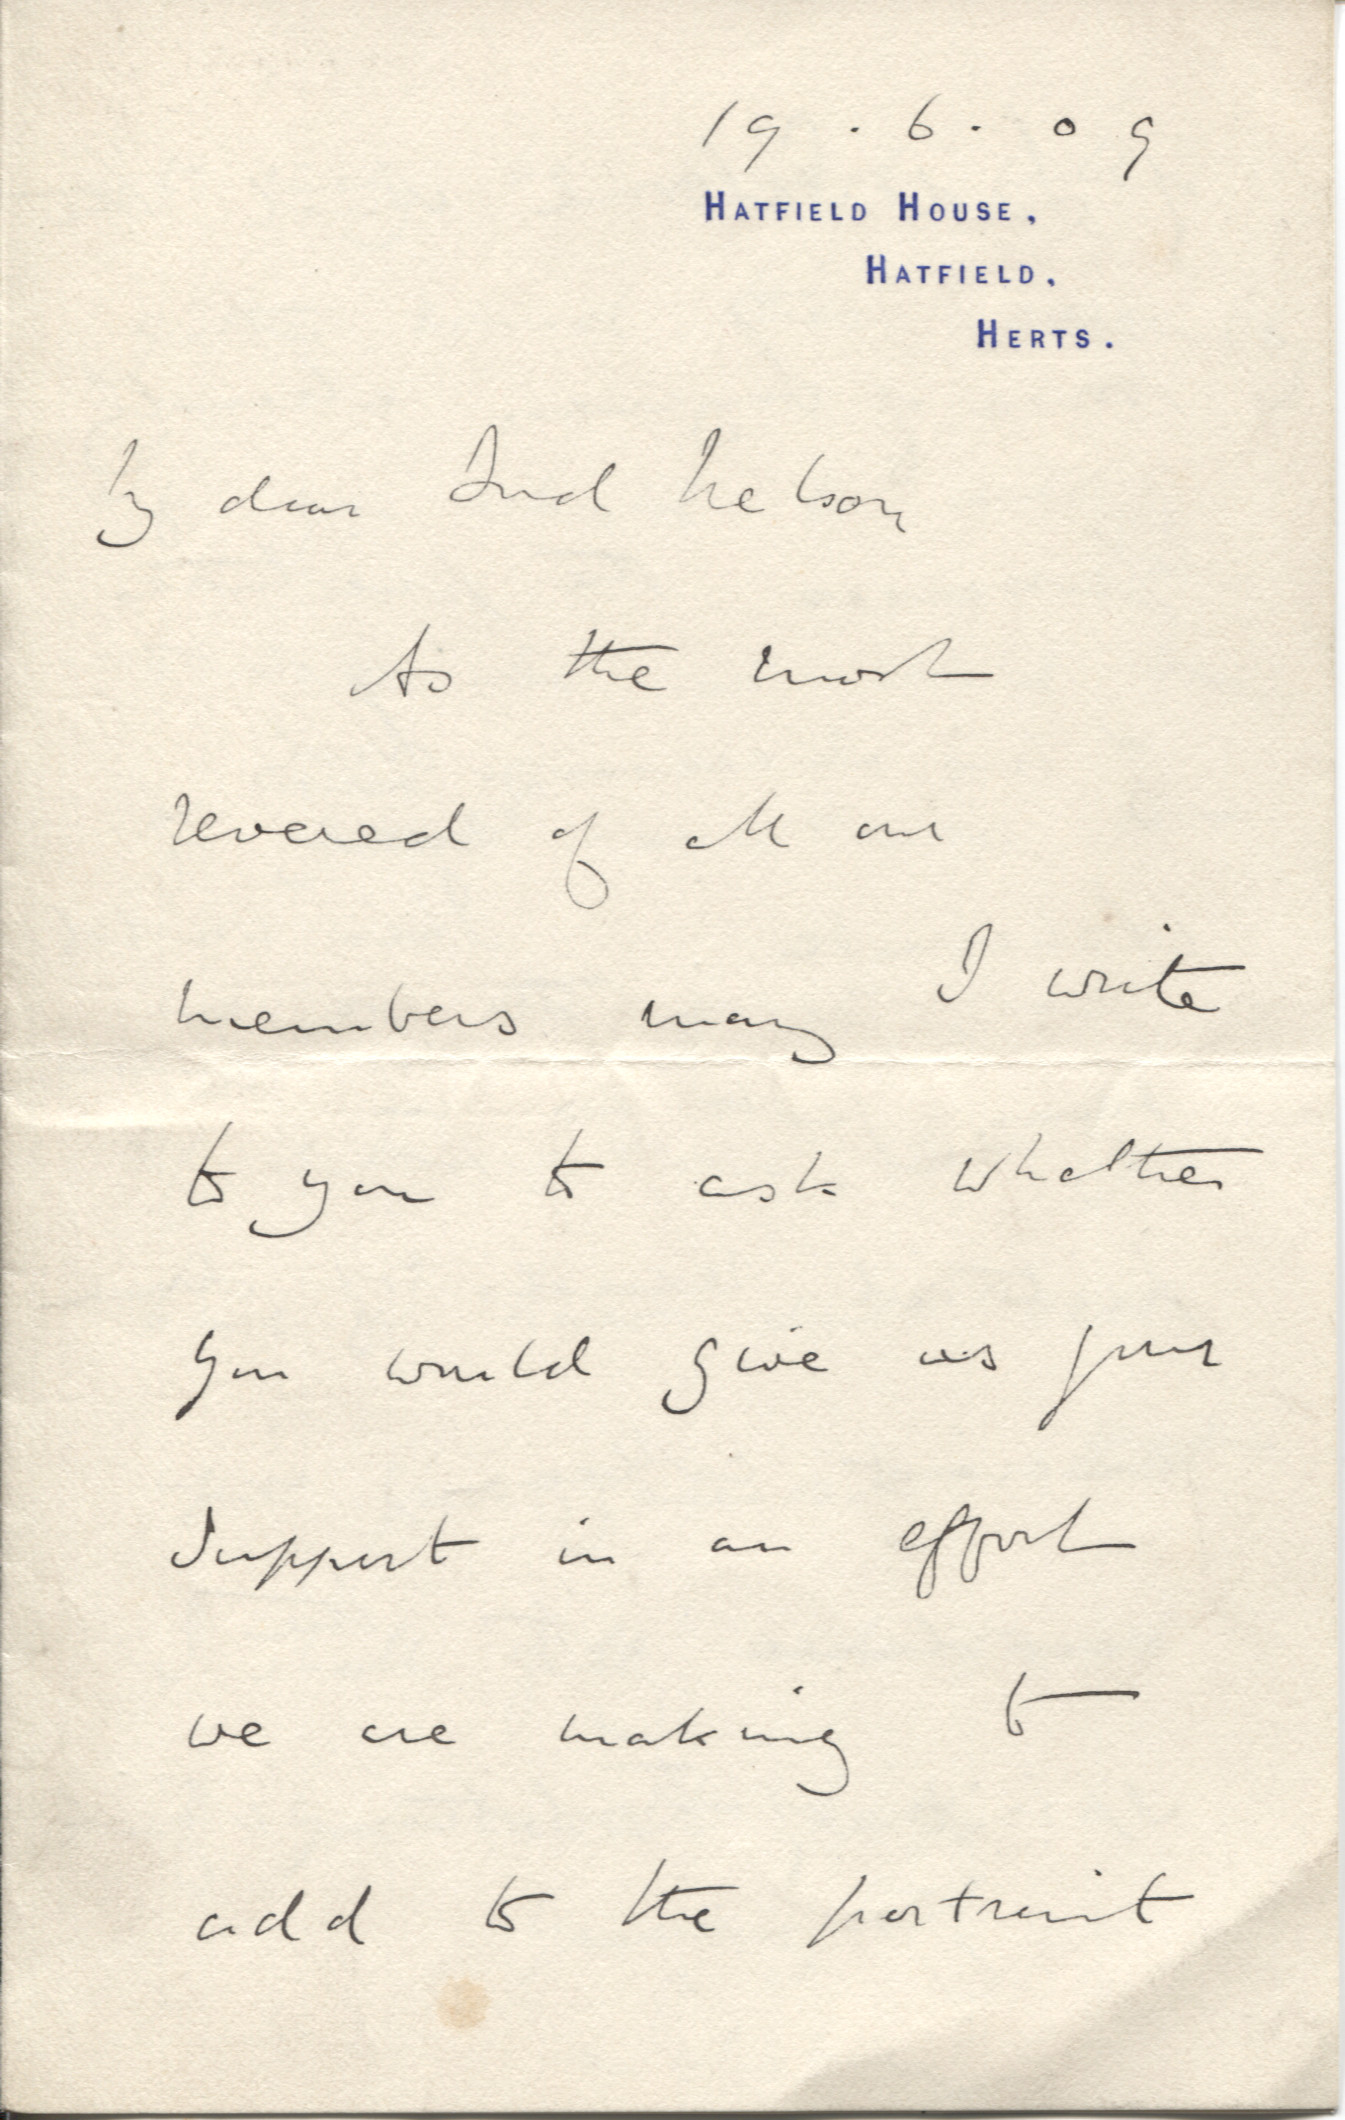 19 . 6 . 09
HATFIELD HOUSE,
HATFIELD,
HERTS.
My dear Lord Nelson
As the most
revered of all our
members may I write
to you to ask whether
you would give us your
support in an effort
we are making to
add to the portrait